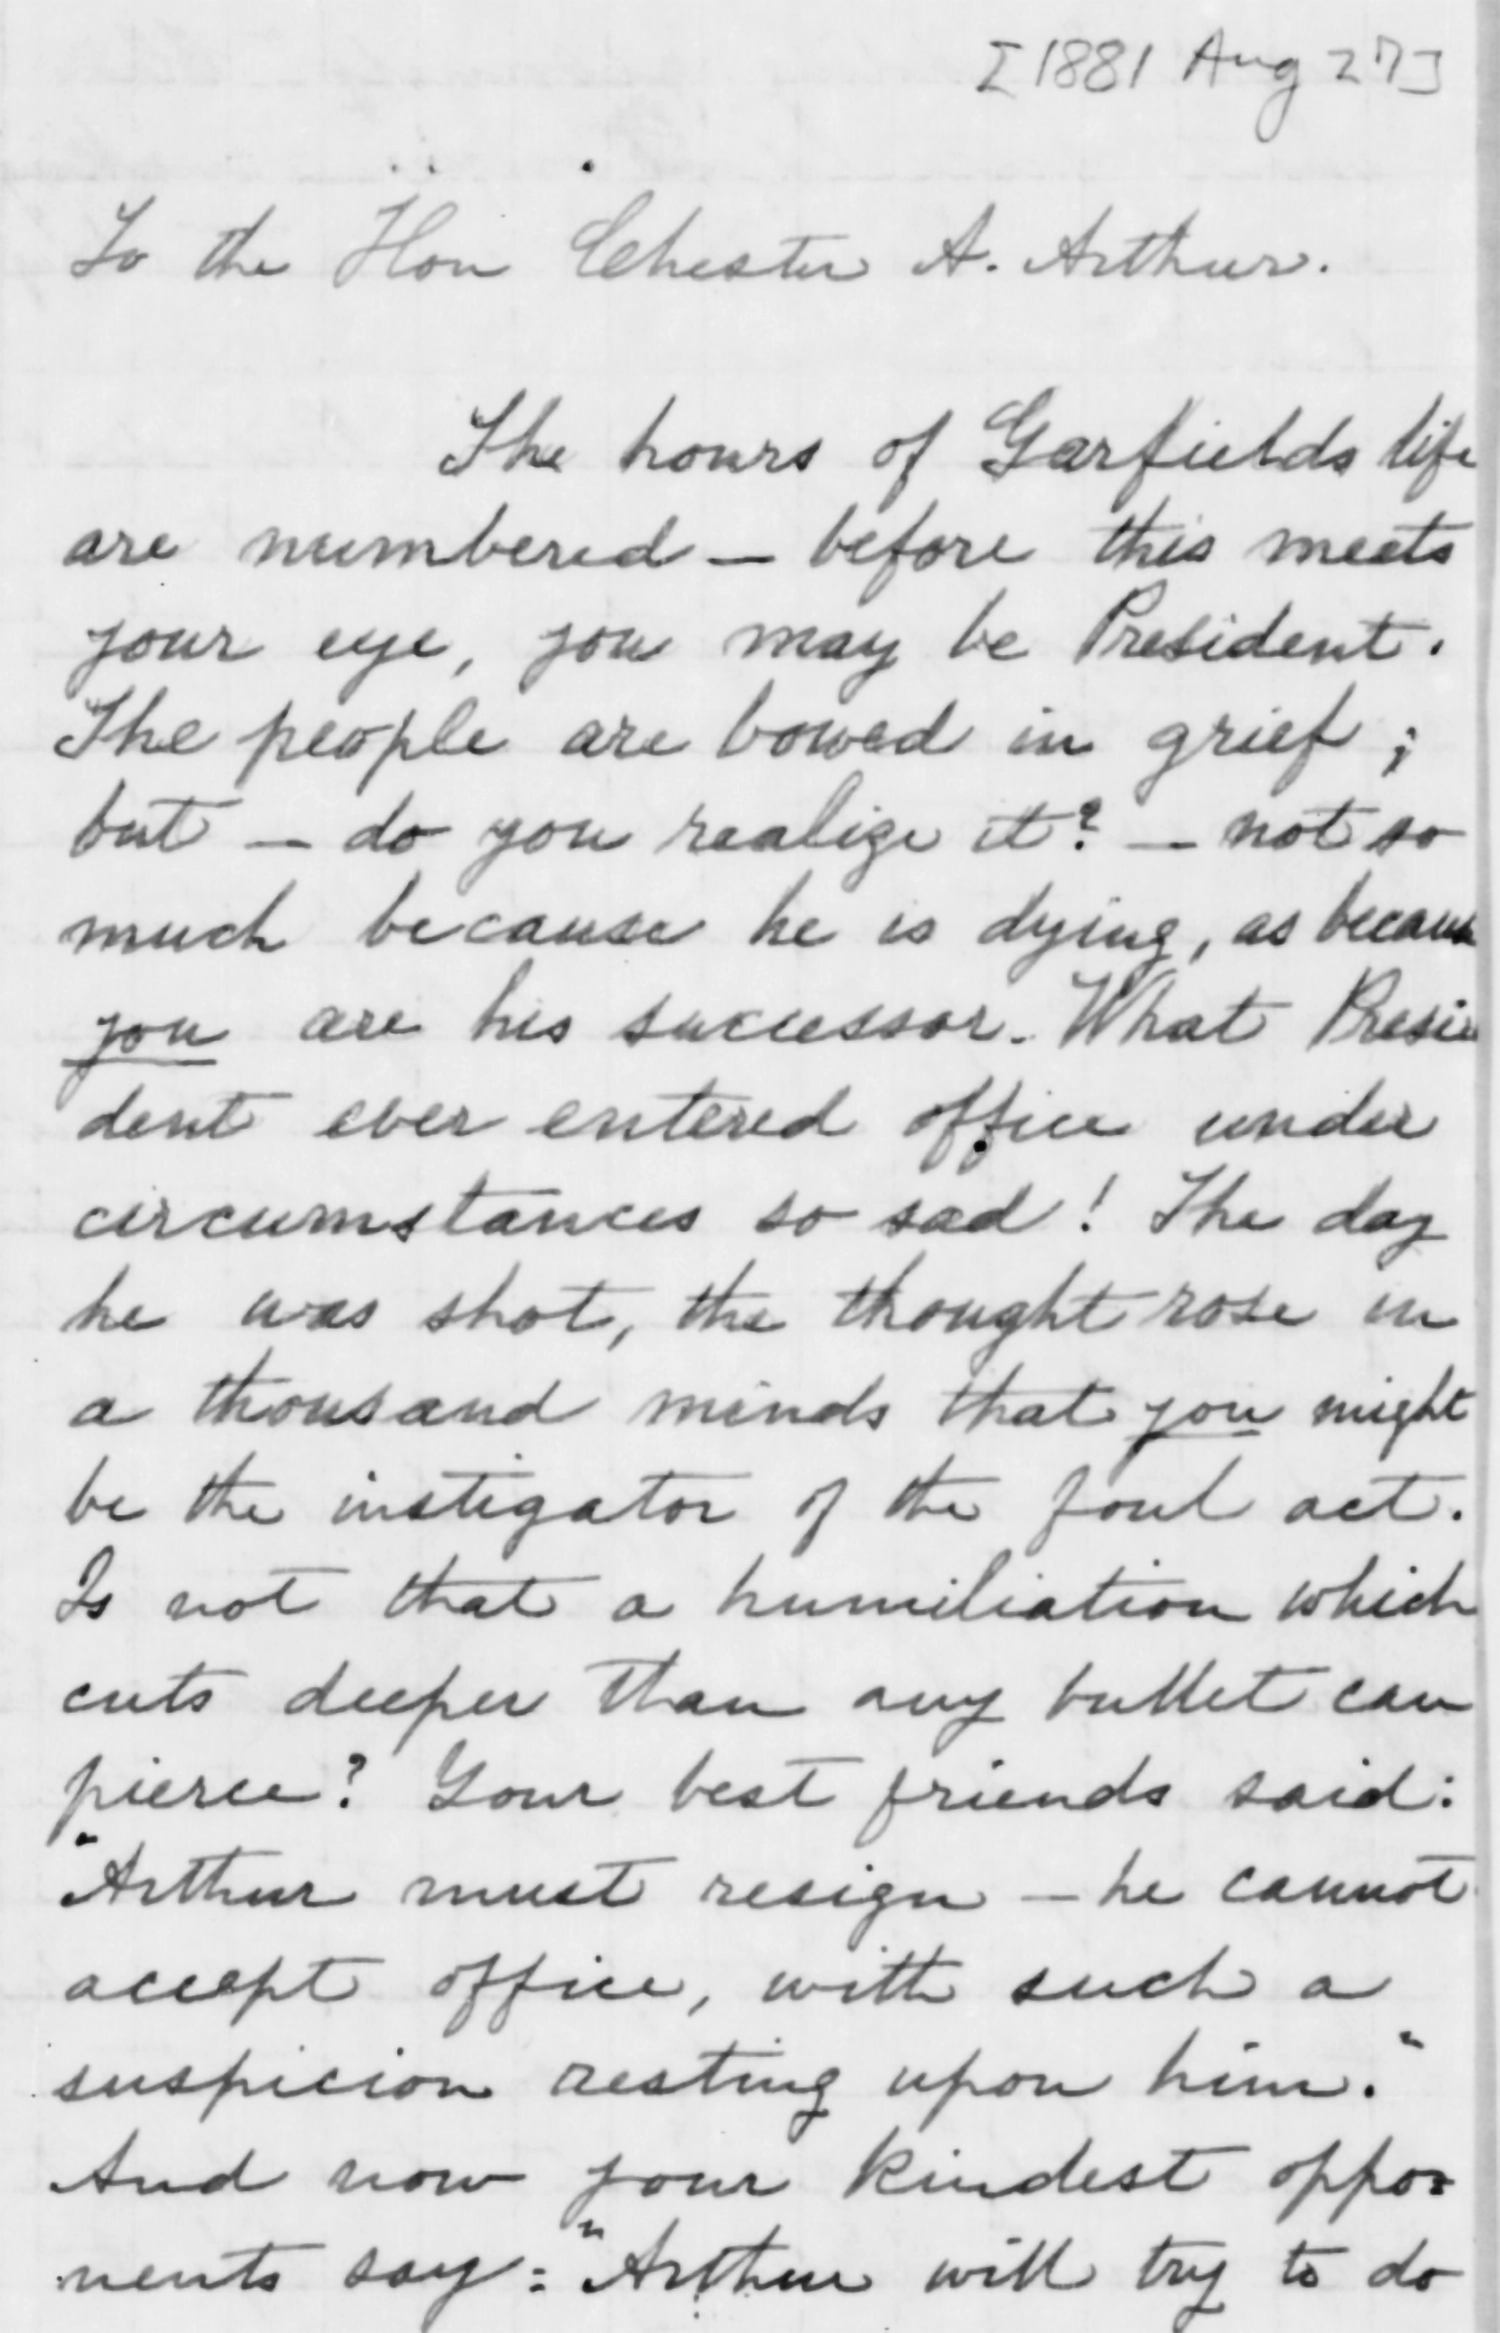 [1881 Aug 27]
To the Hon Chester A. Arthur.
The hours of Garfields life
are numbered — before this meets
your eye, you may be President.
The people are bowed in grief;
but — do you realize it? — not so
much because he is dying, as because
you are his successor. What Presi-
dent ever entered office under
circumstances so sad! The day
he was shot, the thought rose in
a thousand minds that you might
be the instigator of the foul act.
Is not that a humiliation which
cuts deeper than any bullet can
pierce? Your best friends said:
"Arthur must resign — he cannot
accept office, with such a
suspicion resting upon him."
And now your kindest oppo=
nents say: "Arthur will try to do